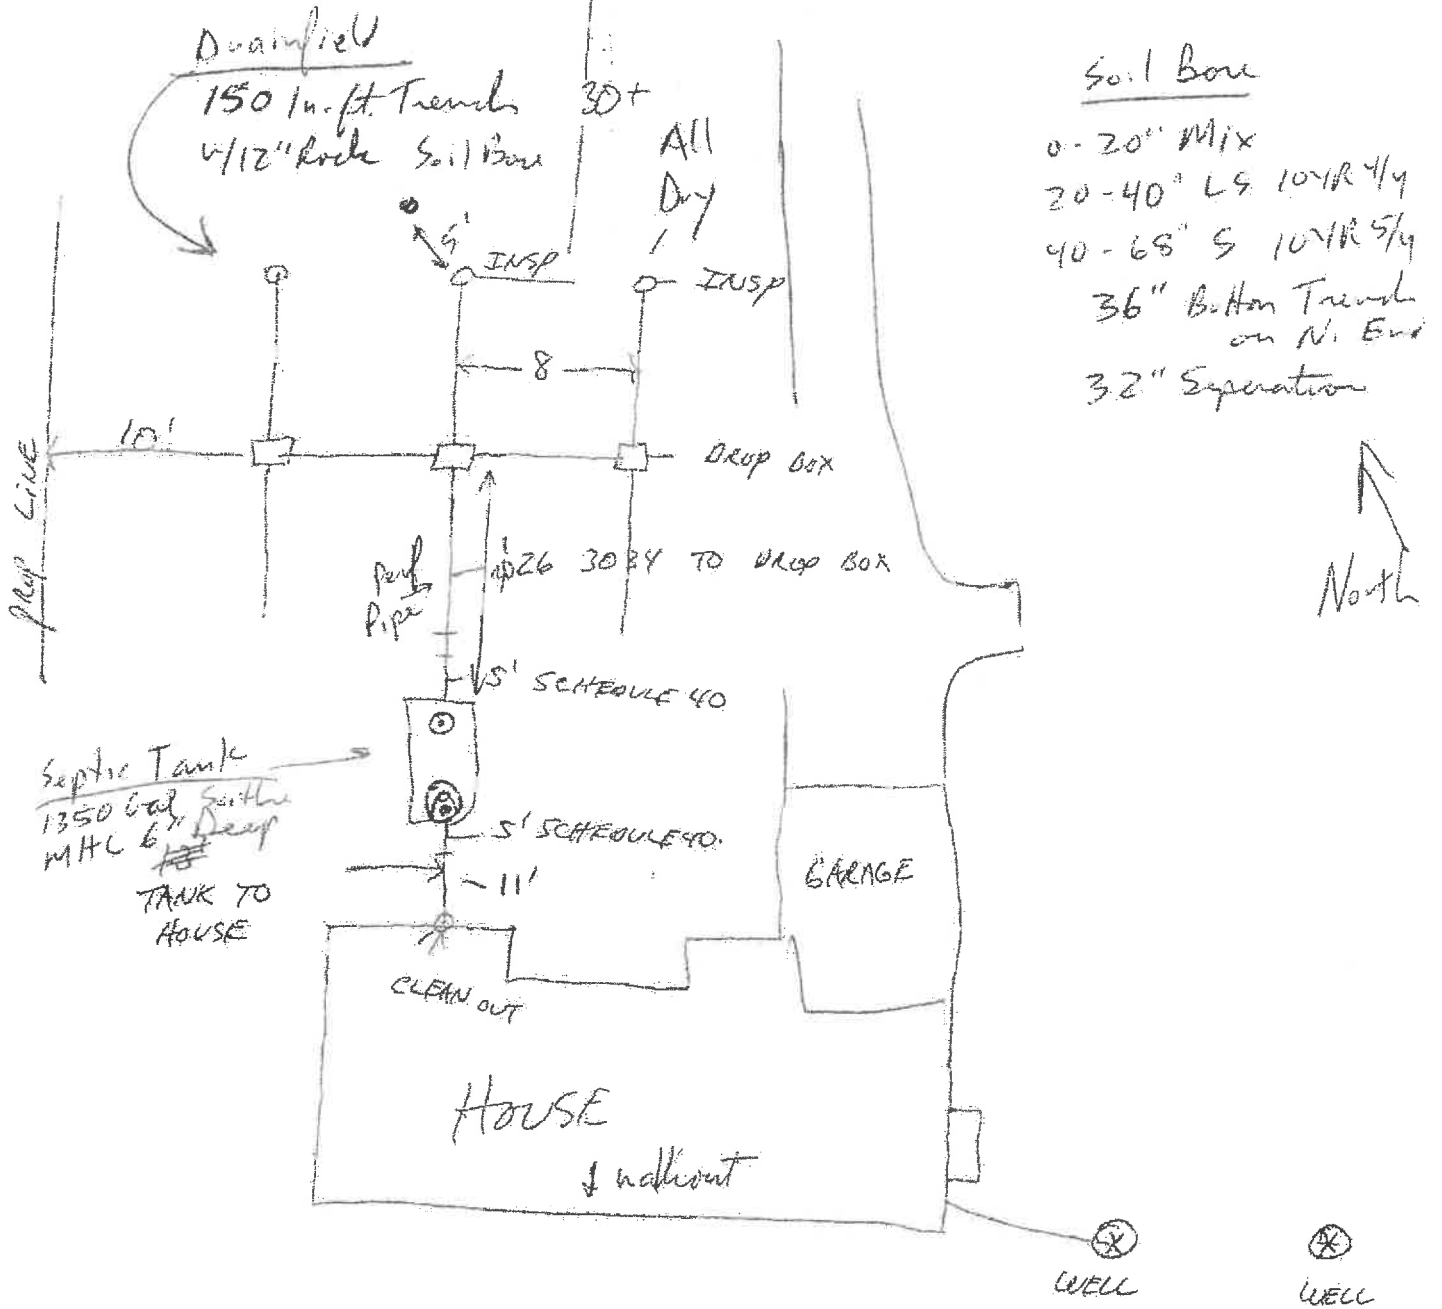 Drainfield
150 ln. ft Trench
w/12" Rock
Soil Bore
30+
All
Dry
Soil Bore
0-20" Mix
20-40" LS 10YR 4/4
40-68" S 10YR 5/4
36" Bottom Trench
on N. End
32" Seperation
North
5'
INSP
INSP
8
10'
DROP BOX
PROP LINE
Perf
Pipe
26 3034 TO DROP BOX
5' SCHEDULE 40
Septic Tank
1350 Gal
MHC 6" Deep
TANK TO
HOUSE
5' SCHEDULE 40.
11'
GARAGE
CLEAN OUT
HOUSE
walkout
WELL
WELL